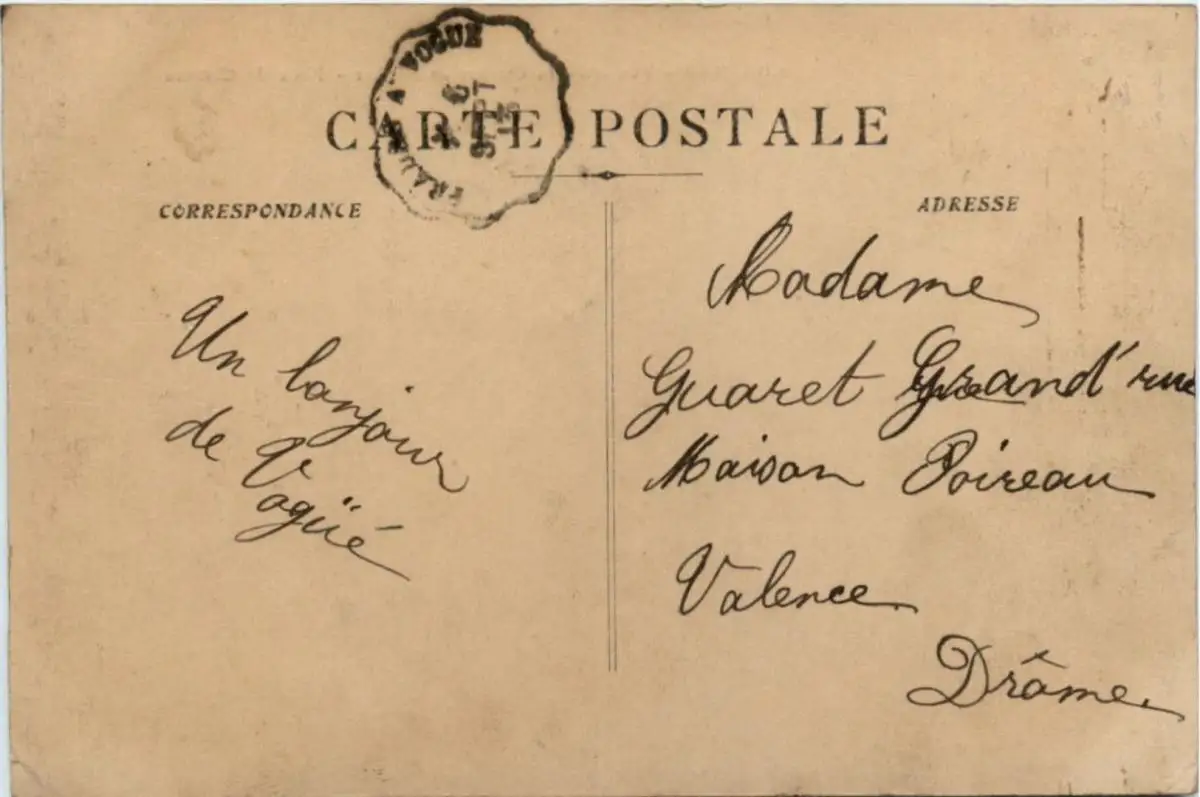 A VOGUE
6
SEPT
15
CARTE POSTALE
CORRESPONDANCE
ADRESSE
Un bonjour
de Vogüé
Madame
Guaret Grand'rue
Maison Poireau
Valence
Drôme.